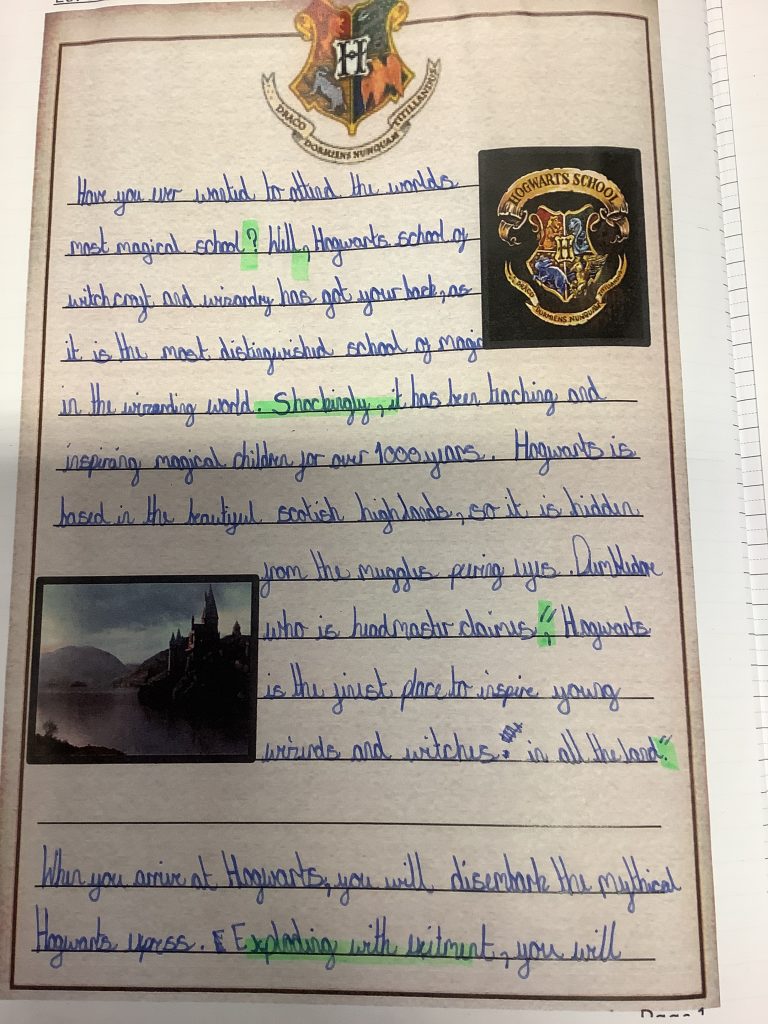 H
DRACO DORMIENS NUNQUAM TITILLANDUS
Have you ever wanted to attend the worlds
most magical school? Well, Hogwarts school of
witchcraft and wizardry has got your back, as
it is the most distinguished school of magic
in the wizarding world. Shockingly, it has been teaching and
inspiring magical children for over 1000 years. Hogwarts is
based in the beautyful scotish highlands, so it is hidden
from the muggles peering eyes. Dumbledore
who is headmaster claimes, "Hogwarts
is the finest place to inspire young
wizards and witches in all the land."
When you arrive at Hogwarts, you will disembark the mythical
Hogwarts express. Exploding with exitment, you will
HOGWARTS SCHOOL
H
DRACO DORMIENS NUNQUAM TITILLANDUS
Page 1